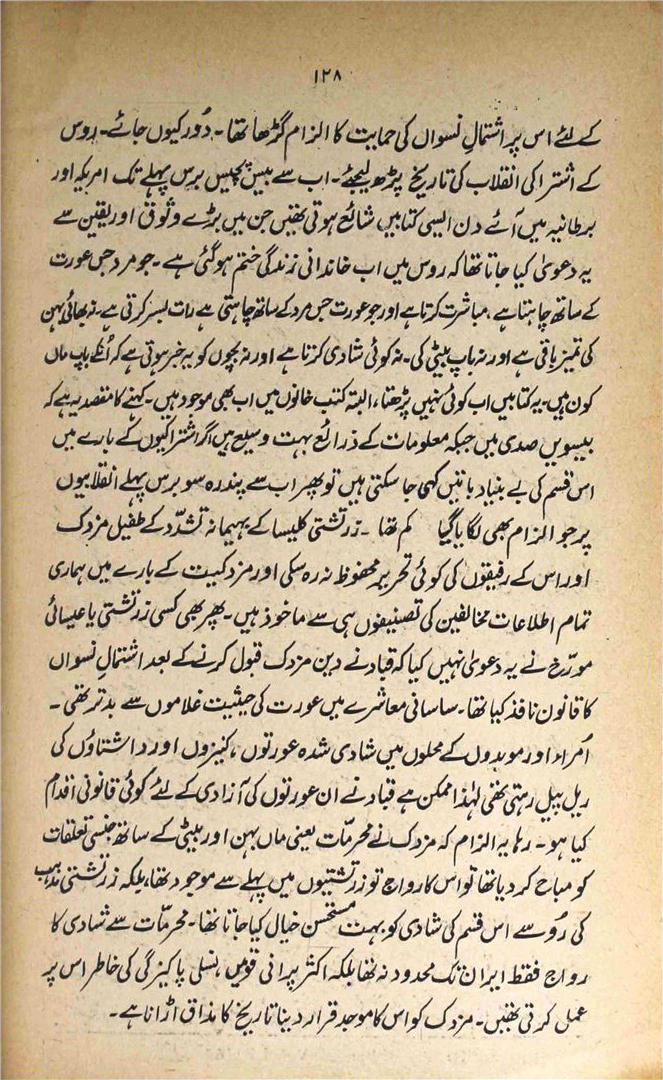 ۱۲۸
کے لئے اس پر اشتمالِ نسواں کی حمایت کا الزام گڑھا تھا۔ دُور کیوں جائے۔ روس
کے اشتراکی انقلاب کی تاریخ پڑھ لیجئے۔ اب سے بیس پچیس برس پہلے تک امریکہ اور
برطانیہ میں آئے دن ایسی کتابیں شائع ہوتی تھیں جن میں بڑے وثوق اور یقین سے
یہ دعویٰ کیا جاتا تھا کہ روس میں اب خاندانی زندگی ختم ہوگئی ہے۔ جو مرد جس عورت
کے ساتھ چاہتا ہے مباشرت کرتا ہے اور جو عورت جس مرد کے ساتھ چاہتی ہے رات بسر کرتی ہے۔ نہ بھائی بہن
کی تمیز باقی ہے اور نہ باپ بیٹی کی۔ نہ کوئی شادی کرتا ہے اور نہ بچوں کو یہ خبر ہوتی ہے کہ اُنکے باپ ماں
کون ہیں۔ یہ کتابیں اب کوئی نہیں پڑھتا، البتہ کتب خانوں میں اب بھی موجود ہیں۔ کہنے کا مقصد یہ ہے کہ
بیسویں صدی میں جبکہ معلومات کے ذرائع بہت وسیع ہیں اگر اشتراکیوں کے بارے میں
اس قسم کی بے بنیاد باتیں کہی جا سکتی ہیں تو پھر اب سے پندرہ سو برس پہلے انقلابیوں
پر جو الزام بھی لگایا گیا کم تھا ۔ زرتشتی کلیسا کے بہیمانہ تشدّد کے طفیل مزدک
اور اس کے رفیقوں کی کوئی تحریر محفوظ نہ رہ سکی اور مزدکیت کے بارے میں ہماری
تمام اطلاعات مخالفین کی تصنیفوں ہی سے ماخوذ ہیں۔ پھر بھی کسی زرتشتی یا عیسائی
مورّخ نے یہ دعویٰ نہیں کیا کہ قباد نے دین مزدک قبول کرنے کے بعد اشتمالِ نسواں
کا قانون نافذ کیا تھا۔ ساسانی معاشرے میں عورت کی حیثیت غلاموں سے بدتر تھی۔
اُمراء اور موبدوں کے محلوں میں شادی شدہ عورتوں، کنیزوں اور داشتاؤں کی
ریل پیل رہتی تھی لہٰذا ممکن ہے قباد نے ان عورتوں کی آزادی کے لئے کوئی قانونی اقدام
کیا ہو۔ رہا یہ الزام کہ مزدک نے محرمّات یعنی ماں بہن اور بیٹی کے ساتھ جنسی تعلقات
کو مباح کر دیا تھا تو اس کا رواج تو زرتشتیوں میں پہلے سے موجود تھا، بلکہ زرتشتی مذہب
کی رُو سے اس قسم کی شادی کو بہت مستحسن خیال کیا جاتا تھا۔ محرمّات سے شادی کا
رواج فقط ایران تک محدود نہ تھا بلکہ اکثر پرانی قومیں، نسلی پاکیزگی کی خاطر اس پر
عمل کرتی تھیں۔ مزدک کو اس کا موجد قرار دینا تاریخ کا مذاق اڑانا ہے۔